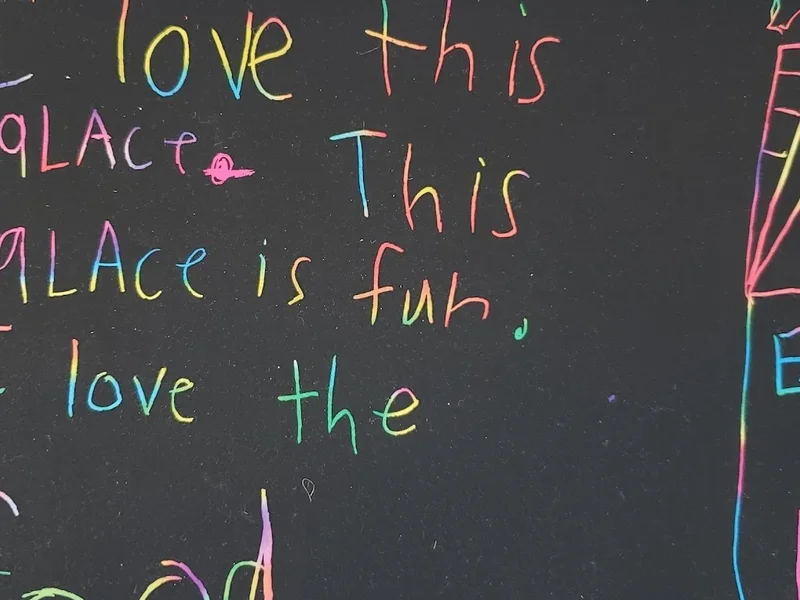 love this
qLAce. This
qLAce is fun.
love the